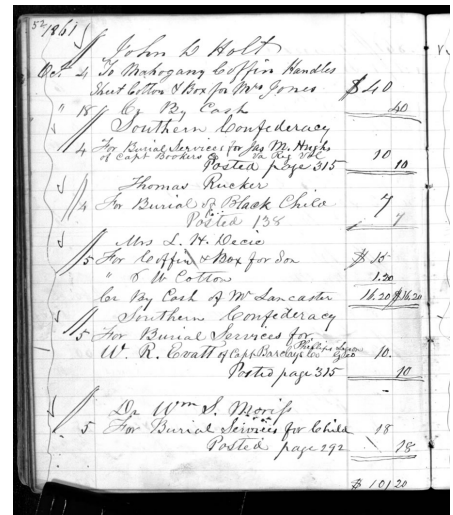 52
1861
John D Holt
Oct 4 To Mahogany Coffin Handles
Sheet Cotton & Box for Mrs Jones $40
" 18 Cr By Cash 40
Southern Confederacy
4 For Burial Services for Jas M. Hughs 10
of Capt Bookers Co Va Reg Vol
Posted page 315 10
Thomas Rucker
4 For Burial of Black Child 7
Posted 138 7
Mrs L. H. Decie
5 For Coffin & Box for Son $15
" W Cotton 1.20
Cr By Cash of Mr Lancaster 16.20 $16.20
Southern Confederacy
5 For Burial Services for
W. R. Evatt of Capt Barclays Co Phillips Legion 10.
Posted page 315 10
Dr Wm S. Moriss
5 For Burial Services for Child 18
Posted page 292 18
$101 20